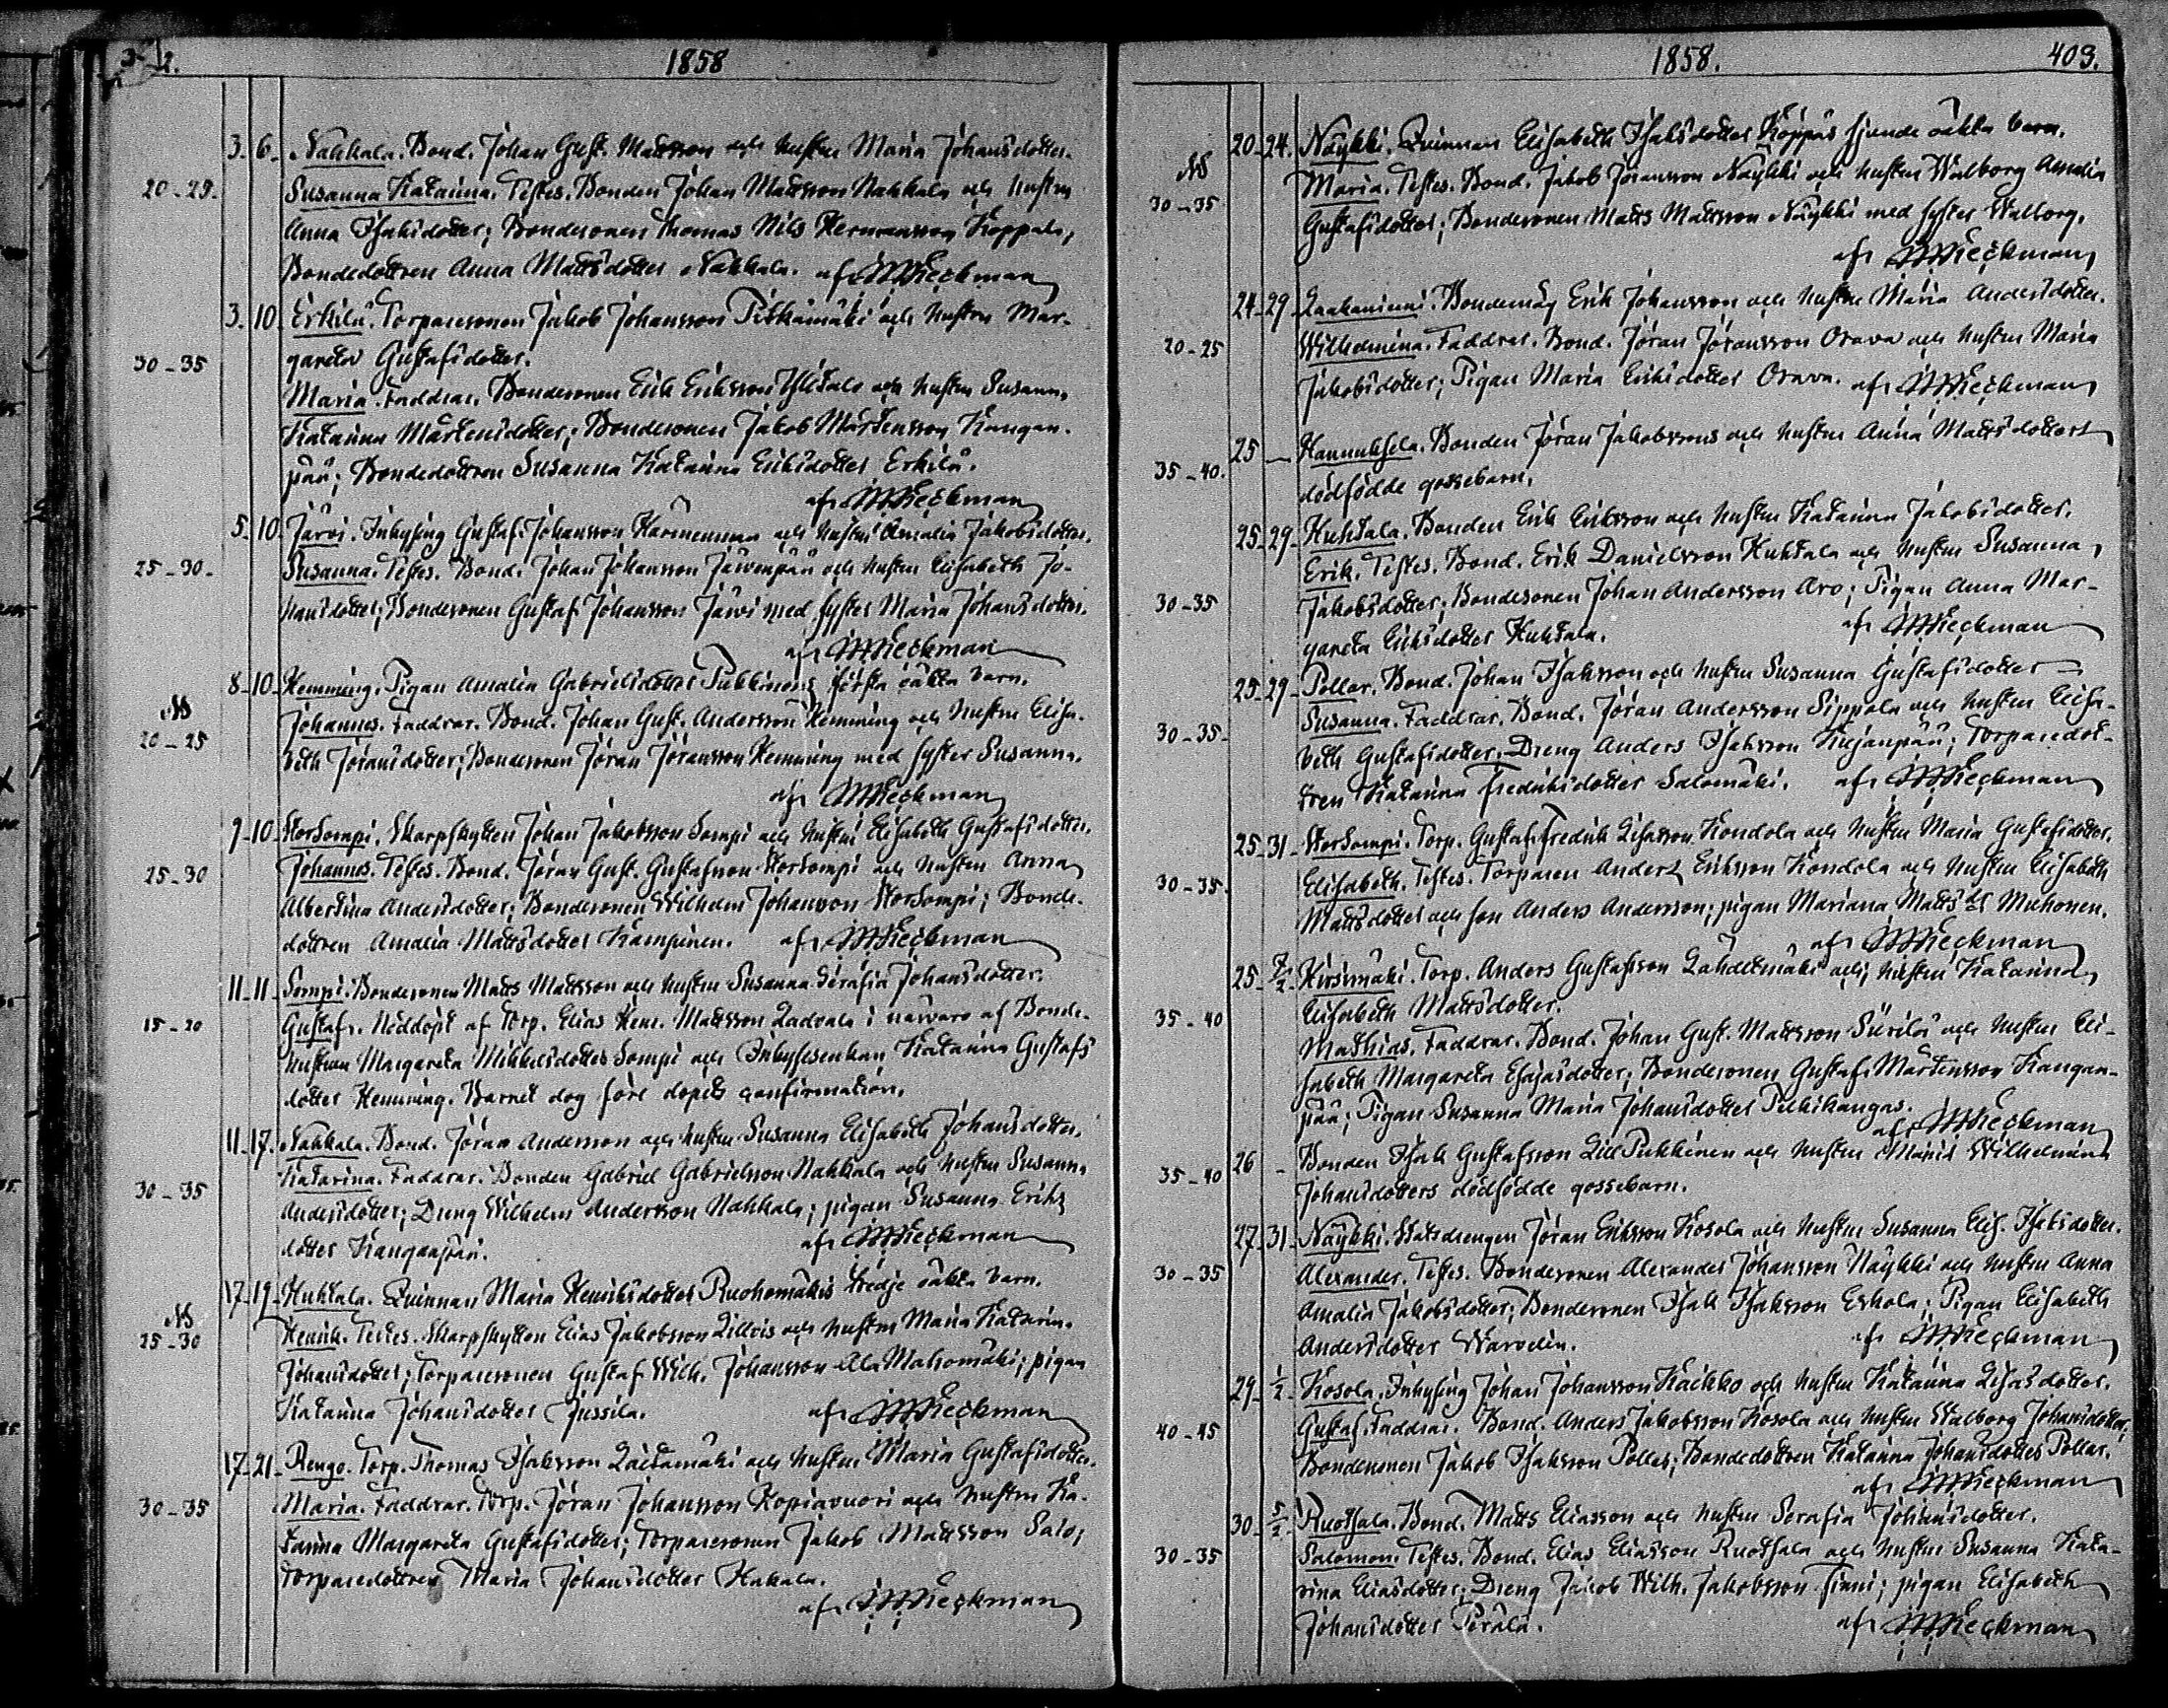 1858
3. 6. Nahkala. Bond. Johan Gust. Mattsson och hustru Maria Johansdotter.
20-25. Susanna Katarina. Testes. Bonden Johan Mattsson Nahkala och hustru
Anna Isaksdotter; Bondesonen Thomas Nils Hermansson Koppalo,
Bondedottren Anna Mattsdotter Nahkala. af
3. 10. Erkilä. Torparesonen Jakob Johansson Pitkämäki och hustru Mar-
30-35 gareta Gustafsdotter.
Maria. Faddrar. Bondesonen Erik Eriksson Ylitalo och hustru Susanna
Katarina Mårtensdotter; Bondesonen Jakob Mårtensson Kangan-
pää; Bondedottren Susanna Katarina Eriksdotter Erkilä.
af
5. 10. Järvi. Inhysing Gustaf Johansson och hustru Amalia Jakobsdotter.
25-30. Susanna. Testes. Bond. Johan Johansson Järvenpää och hustru Elisabeth Jo-
hansdotter; Bondesonen Gustaf Johansson Järvi med syster Maria Johansdotter.
af
8-10. Hemming. Pigan Amalia Gabrielsdotter Pukkinens första oäkta barn.
20-25 Johannes. Faddrar. Bond. Johan Gust. Andersson Hemming och hustru Elisa-
beth Jöransdotter; Bondesonen Jöran Jöransson Hemming med syster Susanna.
af
9-10 Storsompi. Skarpskytten Johan Jakobsson Sompi och hustru Elisabeth Gustafsdotter.
25-30 Johannes. Testes. Bond. Jöran Gust. Gustafsson Storsompi och hustru Anna
Albertina Andersdotter; Bondesonen Wilhelm Johansson Storsompi; Bonde-
dottren Amalia Mattsdotter Kampinen. af
11-11. Sompi. Bondesonen Matts Mattsson och hustru Susanna Serafia Johansdotter.
15-20 Gustaf. Nöddöpt af Torp. Elias Henr. Mattsson Ladvala i närvaro af Bonde-
hustrun Margareta Mikkelsdotter Sompi och Inhyseenkan Katarina Gustafs
dotter Hemming. Barnet dog före dopets confirmation.
11-17. Nahkala. Bond. Jöran Andersson och hustru Susanna Elisabeth Johansdotter.
30-35 Katarina. Faddrar. Bonden Gabriel Gabrielsson Nahkala och hustru Susanna
Andersdotter; Dreng Wilhelm Andersson Nahkala; pigan Susanna Eriks
dotter Kanganpää. af
17-19. Huhtala. Qvinnan Maria Henriksdotter Ruohomäkis tredje oäkta barn.
25-30 Henrik. Testes. Skarpskytten Elias Jakobsson och hustru Maria Katarina
Johansdotter; Torparesonen Gustaf Wilh. Johansson Ala Mahomäki; pigan
Katarina Johansdotter Jussila. af
17-21. Rengo. Torp. Thomas Isaksson Laitamäki och hustru Maria Gustafsdotter.
30-35 Maria. Faddrar. Torp. Jöran Johansson Kopiavuori och hustru Ka-
tarina Margareta Gustafsdotter; Torparesonen Jakob Mattsson Salo;
Torparedottren Maria Johansdotter Hakala.
af
1858. 403.
20-24. Näykki. Qvinnan Elisabeth Isaksdotter Köppäs sjunde oäkta barn.
30-35 Maria. Testes. Bond. Jakob Jöransson Näykki och hustru Walborg Amalia
Gustafsdotter; Bondesonen Matts Mattsson Näykki med syster Walborg.
af
24-29. Bondemåg Erik Johansson och hustru Maria Andersdotter.
20-25 Wilhelmina. Faddrar. Bond. Jöran Jöransson Orava och hustru Maria
Jakobsdotter; Pigan Maria Eriksdotter Orava. af
25 - Hannuksela. Bonden Jöran Jakobssons och hustru Anna Mattsdotters
35-40. dödfödde gossebarn.
25-29. Huhtala. Bonden Erik Eriksson och hustru Katarina Jakobsdotter.
Erik. Testes. Bond. Erik Danielsson Huhtala och hustru Susanna
30-35 Jakobsdotter; Bondesonen Johan Andersson Aro; Pigan Anna Mar-
gareta Eriksdotter Huhtala. af
25-29. Pollar. Bond. Johan Isaksson och hustru Susanna Gustafsdotter
30-35. Susanna. Faddrar. Bond. Jöran Andersson Sippola och hustru Elisa-
beth Gustafsdotter; Dreng Anders Isaksson Kujanpää; Torparedot-
tren Katarina Fredriksdotter Salomäki. af
25-31. Storsompi. Torp. Gustaf Fredrik Kondola och hustru Maria Gustafsdotter.
30-35. Elisabeth. Testes. Torparen Anders Eriksson Kondola och hustru Elisabeth
Mattsdotter och son Anders Andersson; pigan Mariana Matts dr Muhonen.
af
25-7/2 Hirsimäki. Torp. Anders Gustafsson Lähdetmäki och hustru Katarina
35-40 Elisabeth Mattsdotter.
Mathias. Faddrar. Bond. Johan Gust. Mattsson Siirilä och hustru Eli-
sabeth Margareta Esajasdotter; Bondesonen Gustaf Mårtensson Kangan-
pää; Pigan Susanna Maria Johansdotter Pitkikangas.
af
26 - Bonden Isak Gustafsson Lill Pukkinen och hustru Maria Wilhelmina
35-40 Johansdotters dödfödde gossebarn.
27. 31. Näykki. Statsdrengen Jöran Eriksson Kosola och hustru Susanna Elis. Isaksdotter.
30-35 Alexander. Testes. Bondesonen Alexander Johansson Näykki och hustru Anna
Amalia Jakobsdotter; Bondesonen Isak Isaksson Eskola; Pigan Elisabeth
Andersdotter Warvelin. af
29 1/2. Kosola. Inhysing Johan Johansson Kaikko och hustru Katarina
40-45 Gustaf. Faddrar. Bond. Anders Jakobsson Kosola och hustru Walborg Johansdotter;
Bondesonen Jakob Isaksson Pollar; Bondedottren Katarina Johansdotter Pollar.
af
30 5/2 Ruotsala. Bond. Matts Eliasson och hustru Serafia Johansdotter.
30-35 Salomon. Testes. Bond. Elias Eliasson Ruotsala och hustru Susanna Kata-
rina Eliasdotter; Dreng Jakob Wilh. Jakobsson Finni; pigan Elisabeth
Johansdotter Perälä. af